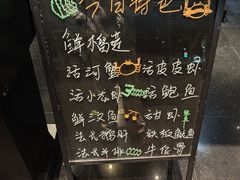 今日特色
鲜榴莲
活河蟹 活皮皮虾
活小龙虾 活鲍鱼
鲜汉鱼 甜虾
法式鹅肝 铁板鱿鱼
法式羊排 牛仔骨